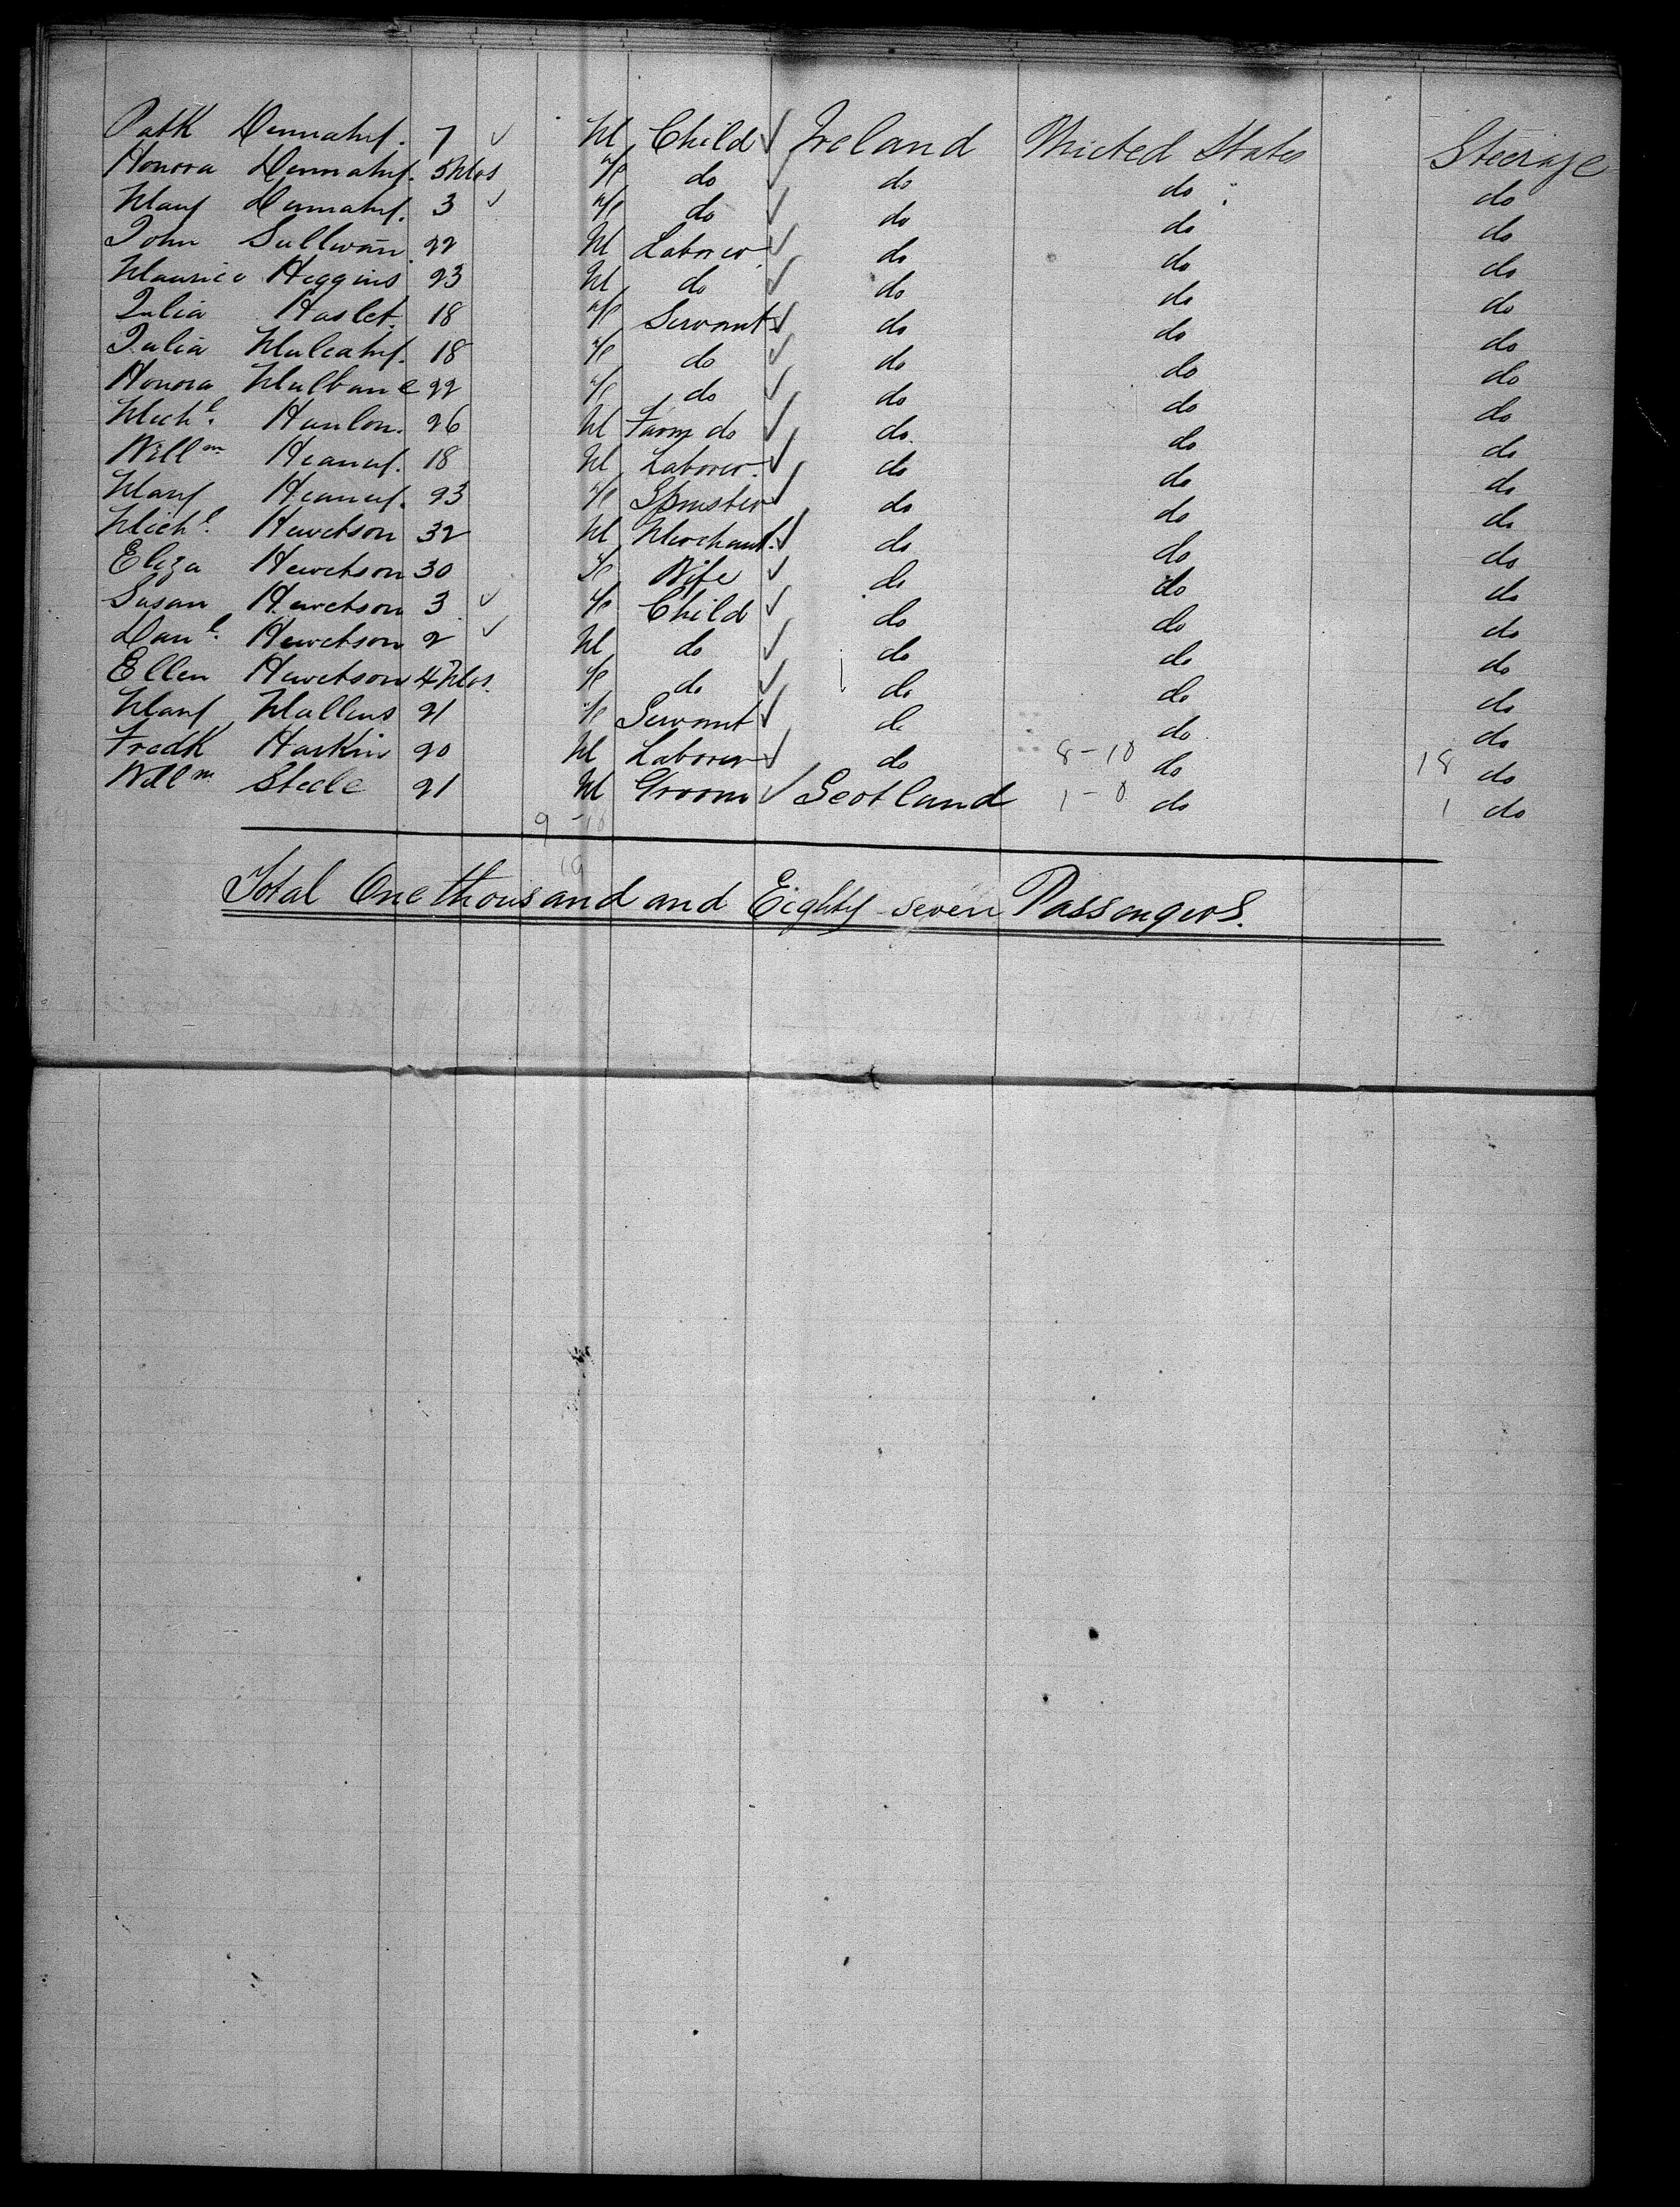 Patk Dennahy. 7 ✓ M Child ✓ Ireland United States Steerage
Honora Dennahy. 5 Mos F do ✓ do do do
Mary Dennahy. 3 ✓ F do ✓ do do do
John Sullivan 22 M Laborer ✓ do do do
Maurice Higgins 23 M do ✓ do do do
Julia Haslet. 18 F Servant ✓ do do do
Julia Mulcahy. 18 F do ✓ do do do
Honora Mulbane 22 F do ✓ do do do
Michl. Hanlon. 26 M Farm do ✓ do do do
Willm Heaney. 18 M Laborer. ✓ do do do
Mary Heaney. 23 F Spinster ✓ do do do
Michl. Hewetson 32 M Merchant. ✓ do do do
Eliza Hewetson 30 F Wife ✓ do do do
Susan Hewetson 3 ✓ F Child ✓ do do do
Danl. Hewetson 2 ✓ M do ✓ do do do
Ellen Hewetson 4 Mos. F do ✓ do do do
Mary Mullins 21 F Servant ✓ do do do
Fredk Harkin 20 M Laborer ✓ do 8-10 do 18 do
Willm Steele 21 M Groom ✓ Scotland 1-0 do 1 do
9-10
19
Total One thousand and Eighty-seven Passengers.